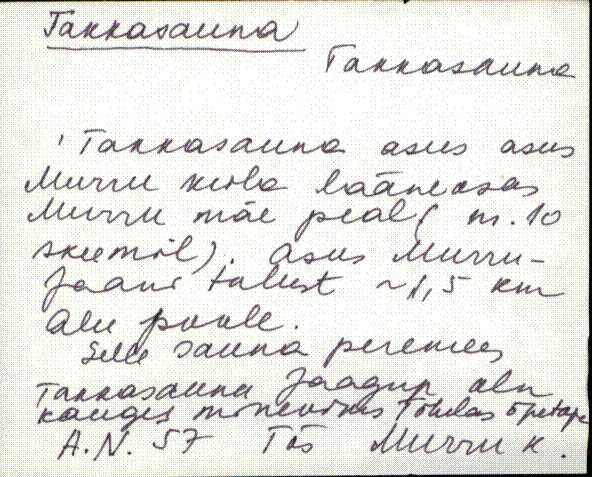 Takkasauna
Takkasauna
'Takkasauna asus asus
Murru küla lääneosas
Murru mäe peal ( nr. 10
skeemil). Asus Murru-
Jaani talust ~ 1,5 km
Alu poole.
Selle sauna peremees
Takkasauna Jaagup oln
kauges minevikus Tõhelas õpetaja
A.N. 57 Tõs Murru k.